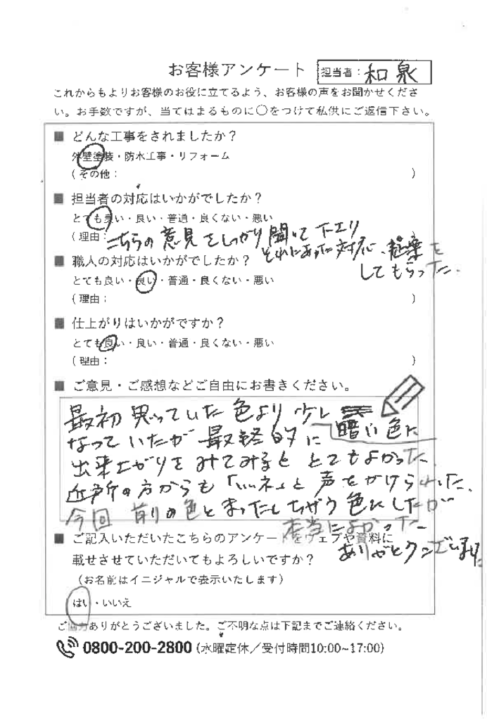 お客様アンケート 担当者: 和泉
これからもよりお客様のお役に立てるよう、お客様の声をお聞かせくださ
い。お手数ですが、当てはまるものに〇をつけて私供にご返信下さい。
■ どんな工事をされましたか?
外壁塗装・防水工事・リフォーム
(その他: )
■ 担当者の対応はいかがでしたか?
とても良い・良い・普通・良くない・悪い
(理由: こちらの意見をしっかり聞いて下さり
それにあった対応、提案を
してもらった。
■ 職人の対応はいかがでしたか?
とても良い・良い・普通・良くない・悪い
(理由: )
■ 仕上がりはいかがですか?
とても良い・良い・普通・良くない・悪い
(理由: )
■ ご意見・ご感想などご自由にお書きください。
最初思っていた色より少し
暗い色に
なっていたが最終的に
出来上がりをみてみると とてもよかった。
近所の方からも「いいネ」と声をかけられた。
今回 前の色とまったくちがう色にしたが
本当によかった。
ありがとうございました
■ ご記入いただいたこちらのアンケートをウェブや資料に
載せさせていただいてもよろしいですか?
(お名前はイニシャルで表示いたします)
はい・いいえ
ご協力ありがとうございました。ご不明な点は下記までご連絡ください。
0800-200-2800 (水曜定休/受付時間10:00~17:00)